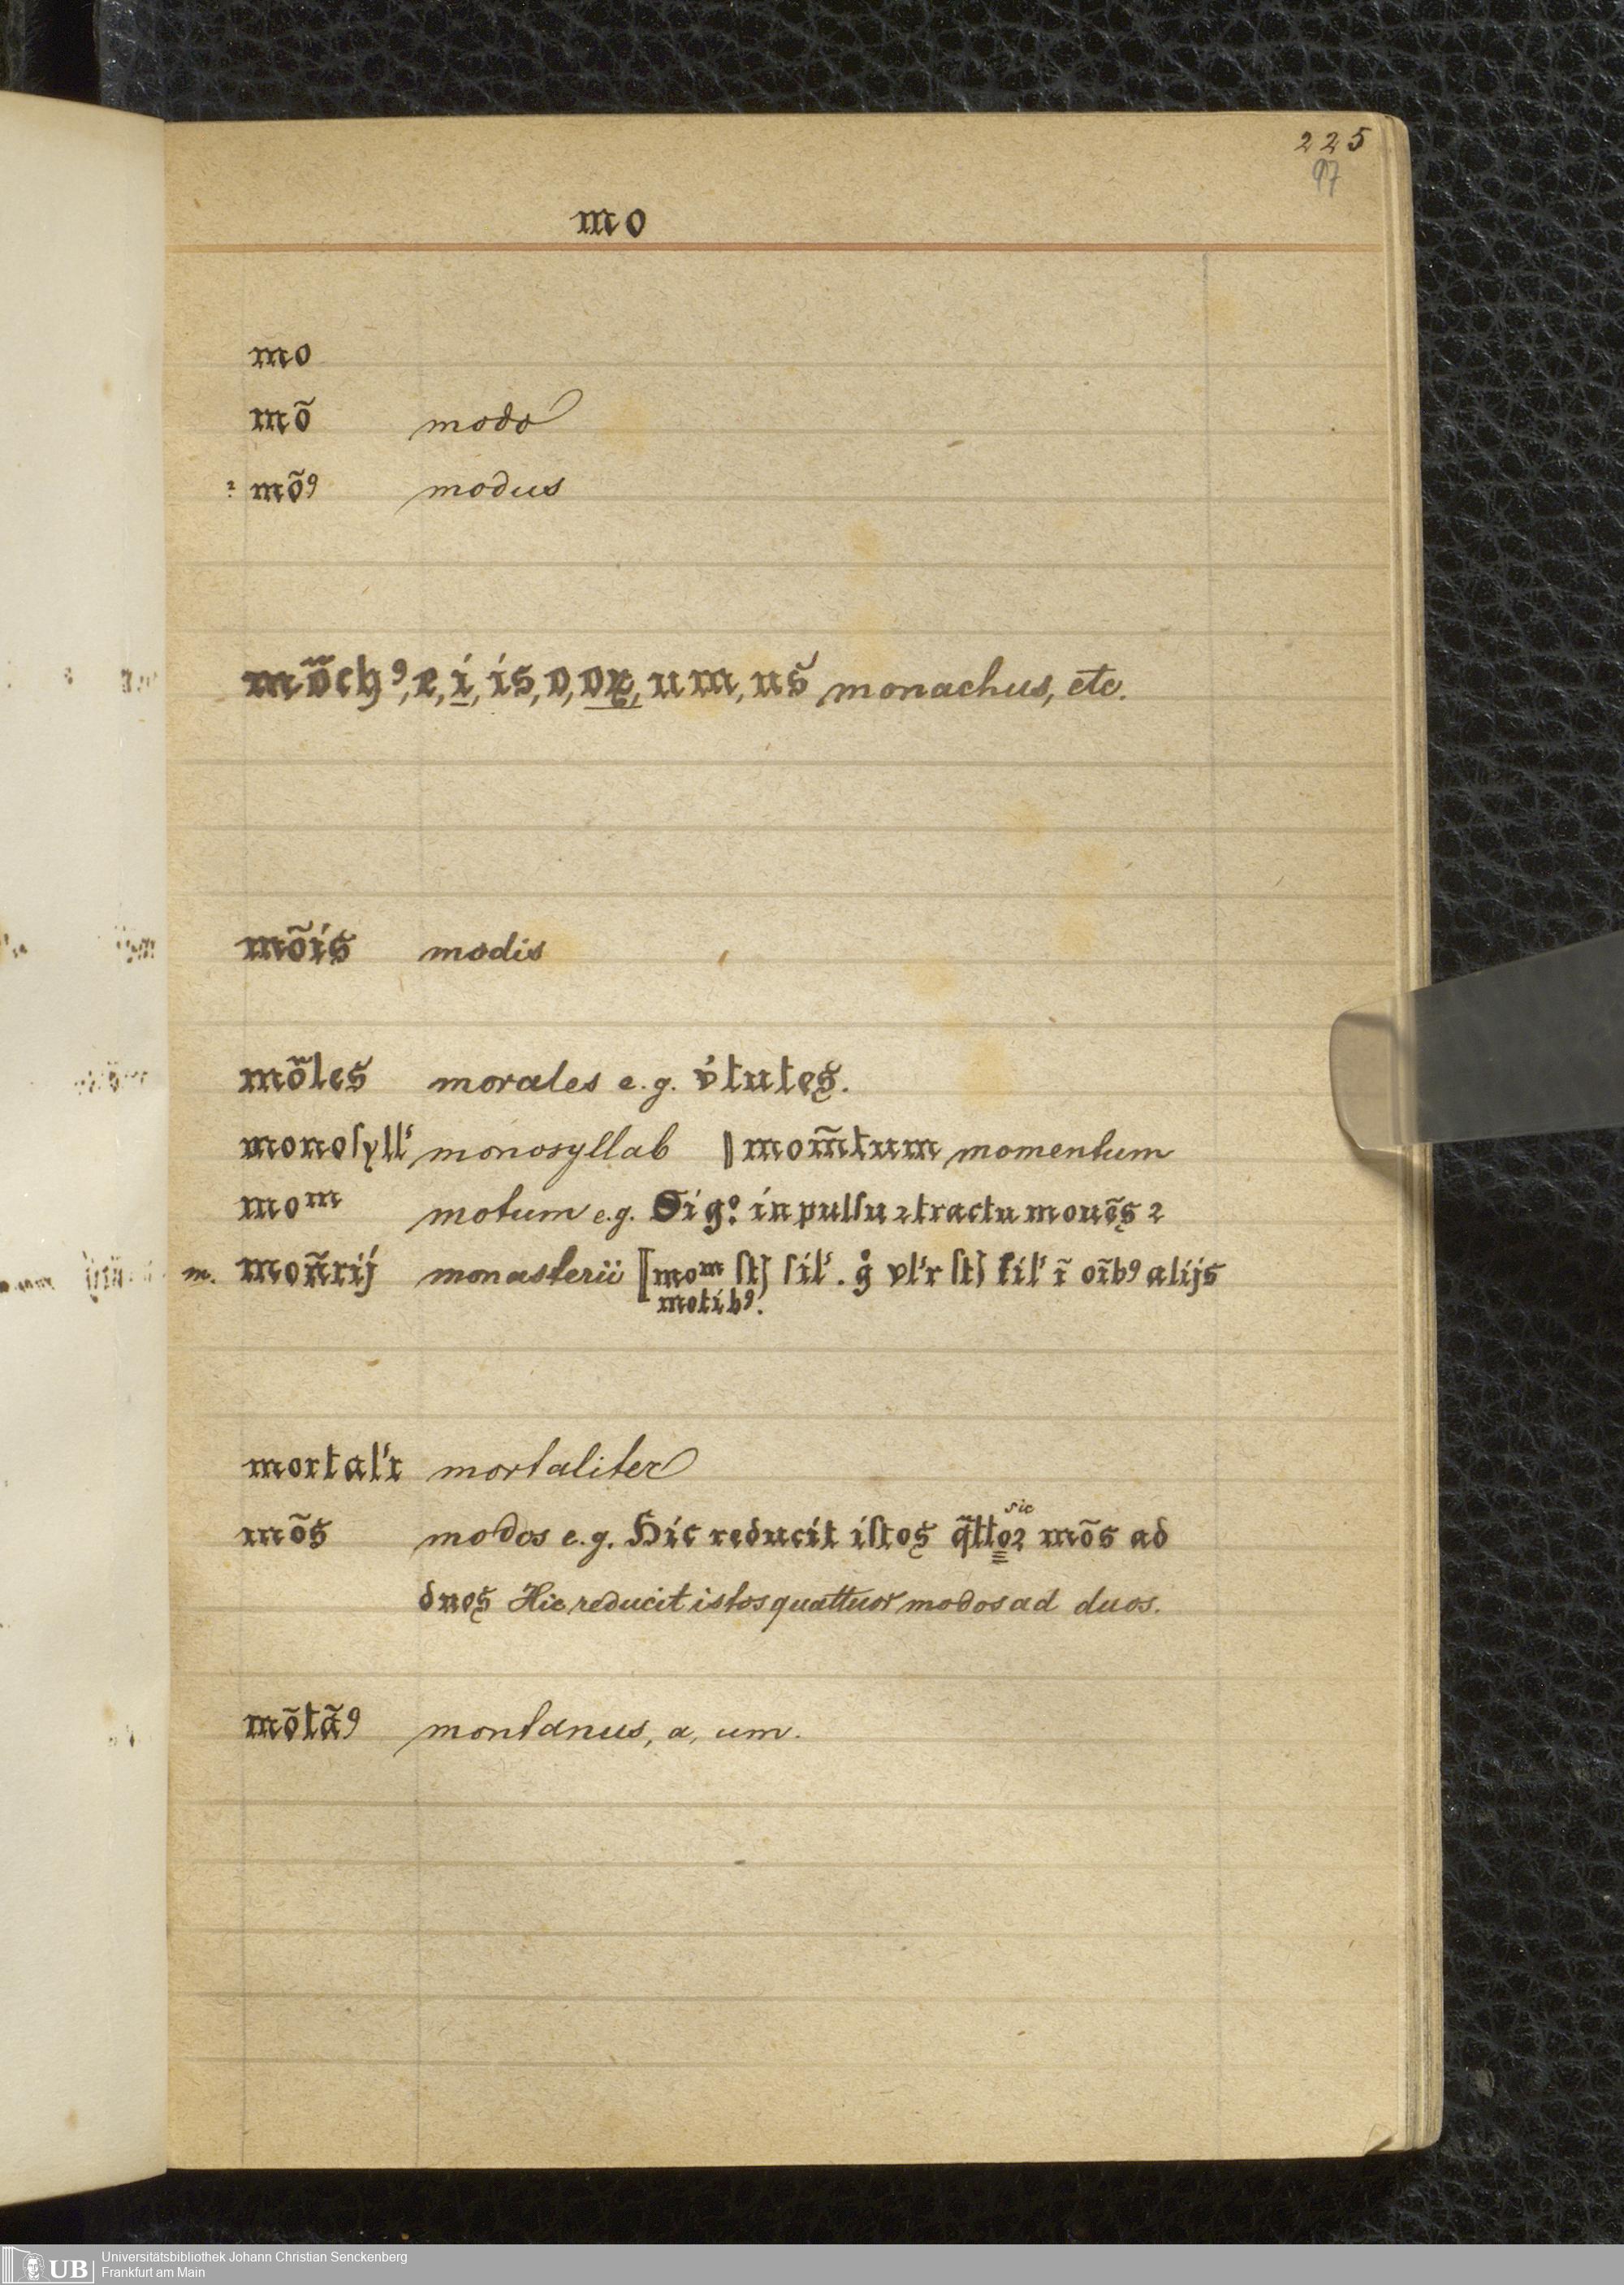 225
97
mo
mo
mõ modo
? mõꝰ modus
mõchꝰ, e, i, is, o, oꝝ, um, us monachus, etc.
mõis modis
mõles morales e.g. v́tutes.
monoſyll' monosyllab ‖ mom̃tum momentum
moᵐ motum e.g. Si gº in pulſu ⁊ tractu mouẽs ⁊
m. moñrij monasterii [moᵐ ſil'. g̊ vl'r ſil' ĩ oĩbꝰ alijs
motibꝰ.
mortal'r mortaliter
sic
mõs modos e.g. Hic reducit iſtos q̃ttoꝛ mõs ad
duos Hic reducit istos quattuor modos ad duos.
mõtãꝰ montanus, a, um.
UB Universitätsbibliothek Johann Christian Senckenberg
Frankfurt am Main